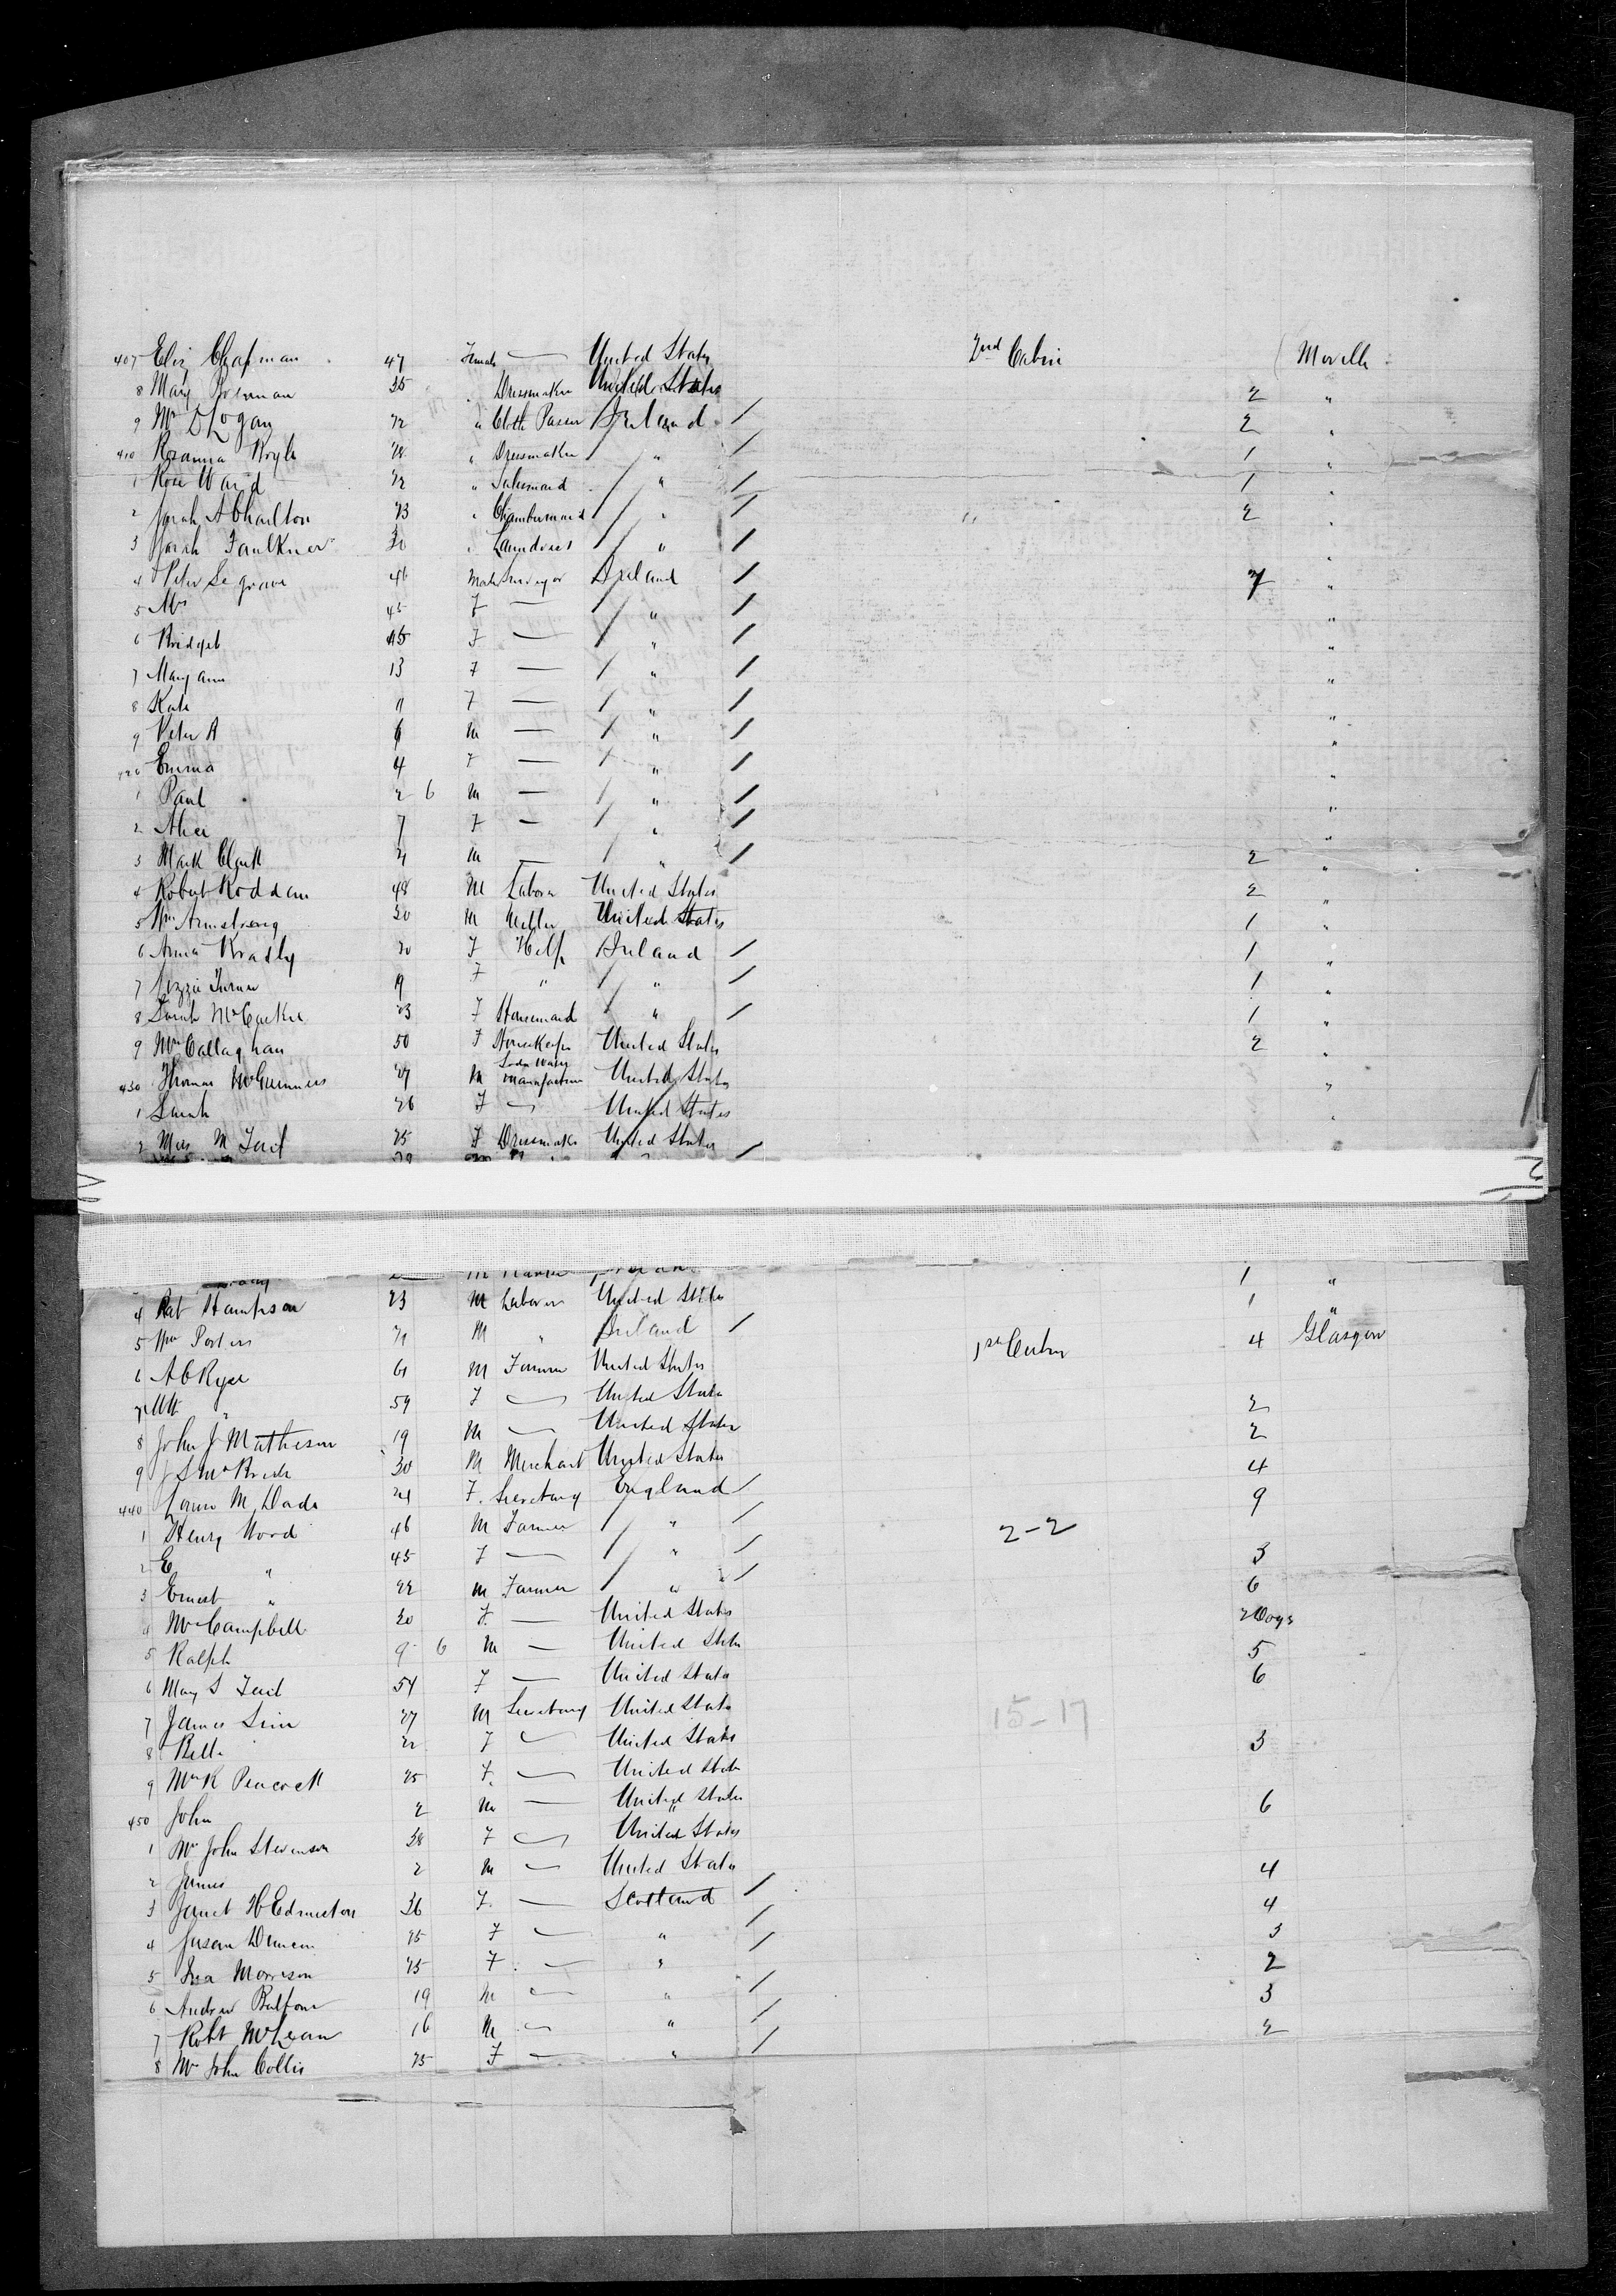 407 Eliz Chapman 47 Female — United States 2nd Cabin Moville
8 Mary 35 " Dressmaker United States 2 "
9 Mrs D Logan 22 " Cloth Ireland / 2 "
410 Rosanna Boyle " Dressmaker / " / 1 "
1 Rose Ward 22 " / " / 1 "
2 Sarah A Charlton 23 " Chambermaid / " / " 2 "
3 Sarah Faulkner 30 " Laundress / " / "
4 Peter Segrave 46 Male Surveyor Ireland / 7 "
5 Mrs 45 F — / " / "
6 Bridget 15 F — / " / "
7 Mary ann 13 F — / " / "
8 Kate 11 F — / " / "
9 Peter A 6 M — / " / "
420 Emma 4 F — / " / "
1 Paul 2 6 M — / " / "
2 Alice 7 F — / " / "
3 Mark Clark 21 M — / " / 2 "
4 Robert Roddam 48 M Labor United States 2 "
5 Wm Armstrong 30 M United States 1 "
6 Anna 20 F Help Ireland / 1 "
7 Lizzie Turner 19 F " / " / 1 "
8 Sarah 23 F Housemaid " / 1 "
9 Mrs Callaghan 50 F Housekeeper United States 2 "
430 Thomas McGuinness 27 M Soda Water Manufacture United States "
1 Sarah 26 F — United States "
2 Miss M Tait 25 F Dressmaker United States
M 1 "
4 Pat Hampson 23 M Laborer United States 1 "
5 Wm Porters 21 M " Ireland / 4 Glasgow
6 A C Ryer 61 M Farmer United States 1st Cabin
7 " 59 F — United States 2
8 John J Matheson 19 M — United States 2
9 J S McBride 30 M Merchant United States 4
440 Laura M Dade 24 F. Secretary England / 9
1 Henry Wood 46 M Farmer / " / 2-2
2 E " 45 F — / " / 3
3 Ernest " 22 M Farmer / " / 6
4 Mrs Campbell 30 F. — United States 2 Boys
5 Ralph 9 6 M — United States 5
6 Mary S Tait 54 F — United States 6
7 James Sim 27 M Secretary United States 15-17
8 Bella 22 F — United States 3
9 Mrs R Peacock 25 F. — United States
450 John 2 M — United States 6
1 Mrs John Stevenson 38 F — United States
2 James 2 M — United States 4
3 Janet H Edmiston 36 F. — Scotland / 4
4 Susan Duncan 25 F — " / 3
5 Ina Morrison 25 F. — " / 2
6 Andrew Balfour 19 M — " / 3
7 Robt McLean 16 M — " / 2
8 Mrs John Collis 25 F — " /